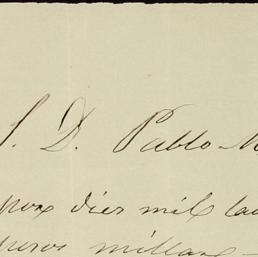 S. D. Pablo M
por diez mil la
pesos millar